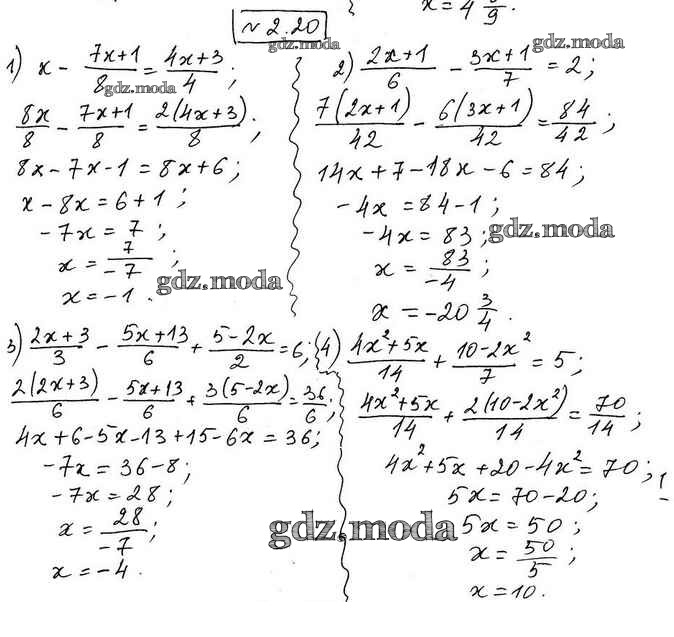 x = 4 5/9.
№ 2.20
gdz.moda
1) x - (7x+1)/8 = (4x+3)/4;
gdz.moda
8x/8 - (7x+1)/8 = 2(4x+3)/8;
8x-7x-1=8x+6;
x-8x=6+1;
-7x=7;
x=7/-7;
gdz.moda
x=-1.
2) (2x+1)/6 - (3x+1)/7 = 2;
gdz.moda
7(2x+1)/42 - 6(3x+1)/42 = 84/42;
14x+7-18x-6=84;
-4x=84-1;
-4x=83;
gdz.moda
x=83/-4;
x=-20 3/4.
3) (2x+3)/3 - (5x+13)/6 + (5-2x)/2 = 6;
2(2x+3)/6 - (5x+13)/6 + 3(5-2x)/6 = 36/6;
4x+6-5x-13+15-6x=36;
-7x=36-8;
-7x=28;
x=28/-7;
x=-4.
gdz.moda
4) (4x²+5x)/14 + (10-2x²)/7 = 5;
(4x²+5x)/14 + 2(10-2x²)/14 = 70/14;
4x²+5x+20-4x²=70;
5x=70-20;
5x=50;
x=50/5;
x=10.